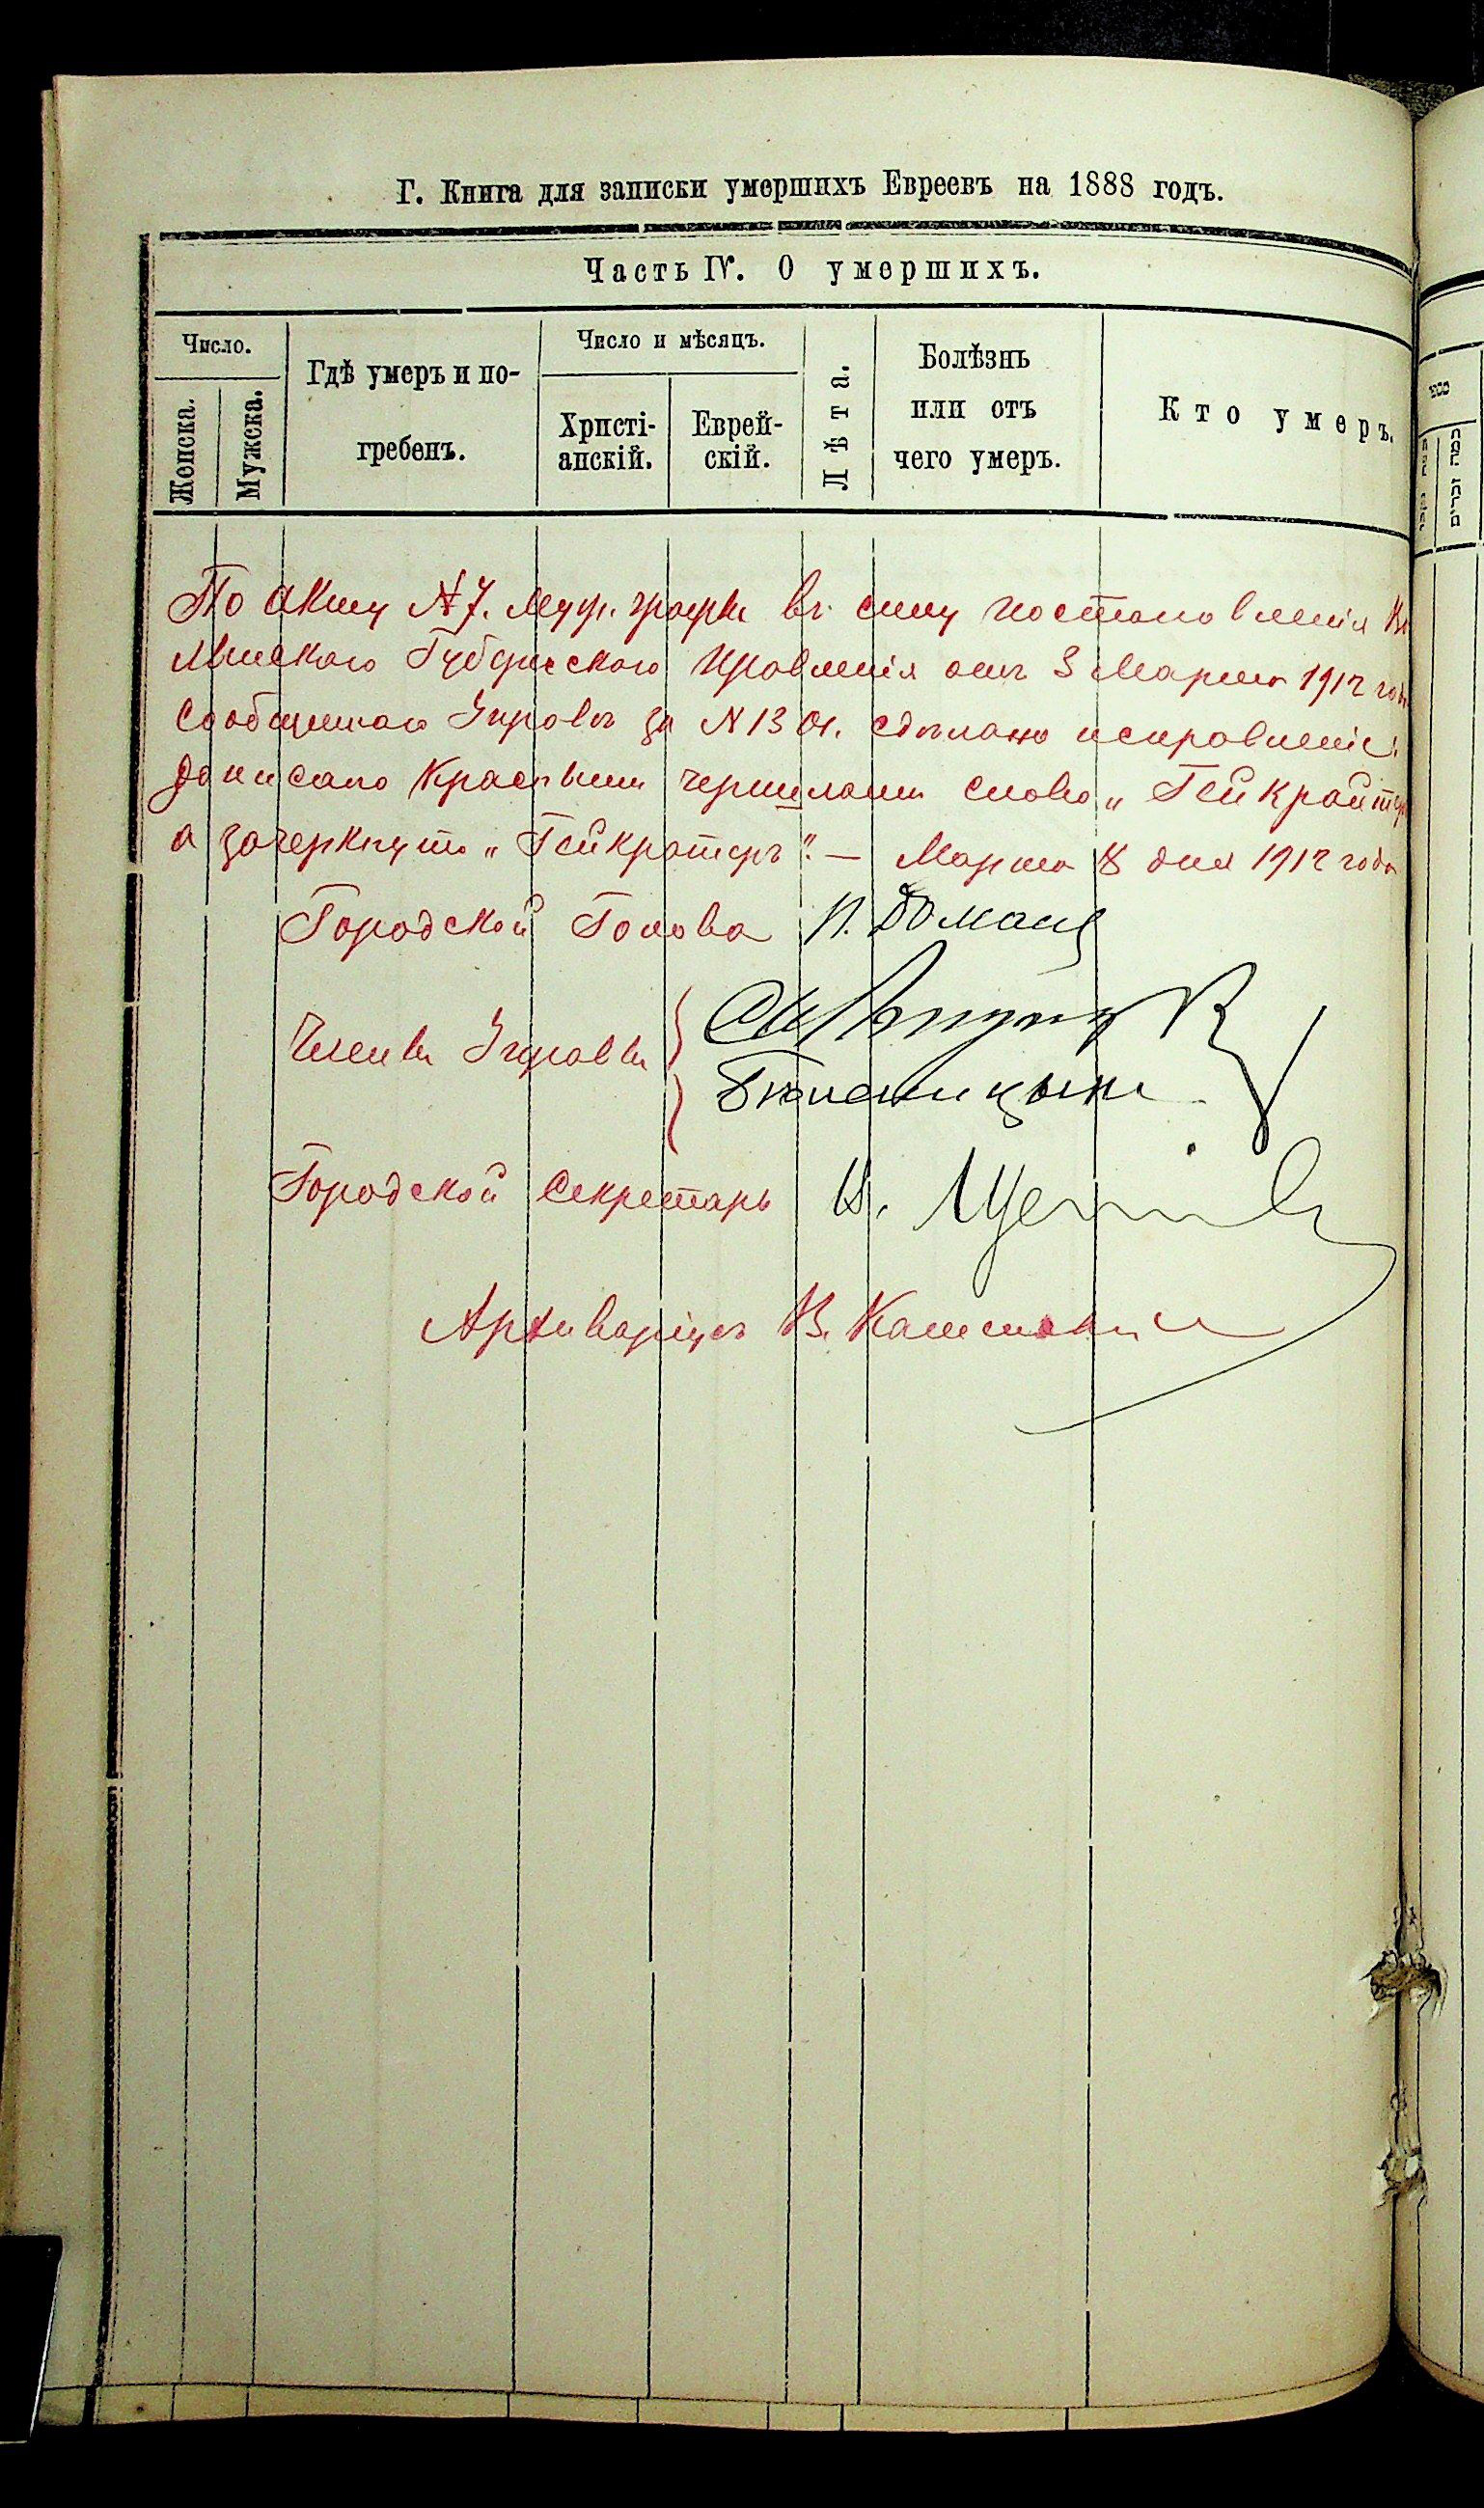 Г. Книга для записки умершихъ Евреевъ на 1888 годъ.
Часть IV. О умершихъ.
Число.
Женска.
Мужска.
Гдѣ умеръ и по-
гребенъ.
Число и мѣсяцъ.
Христі-
анскій.
Еврей-
скій.
Лѣта.
Болѣзнь
или отъ
чего умеръ.
Кто умеръ.
По акту №7. муж. графы въ силу постановленія
Губернскаго Правленія отъ 3 Марта 1912 года
сообщеннаго Управѣ за №1301. сдѣлано исправленіе:
дописано красными чернилами слово „Гейкрайтеръ
а зачеркнуто „Гейкратеръ“. — Марта 8 дня 1912 года
Городской Голова
Члены Управы
Городской Секретарь
Архиваріусъ В.
כמה זכרים